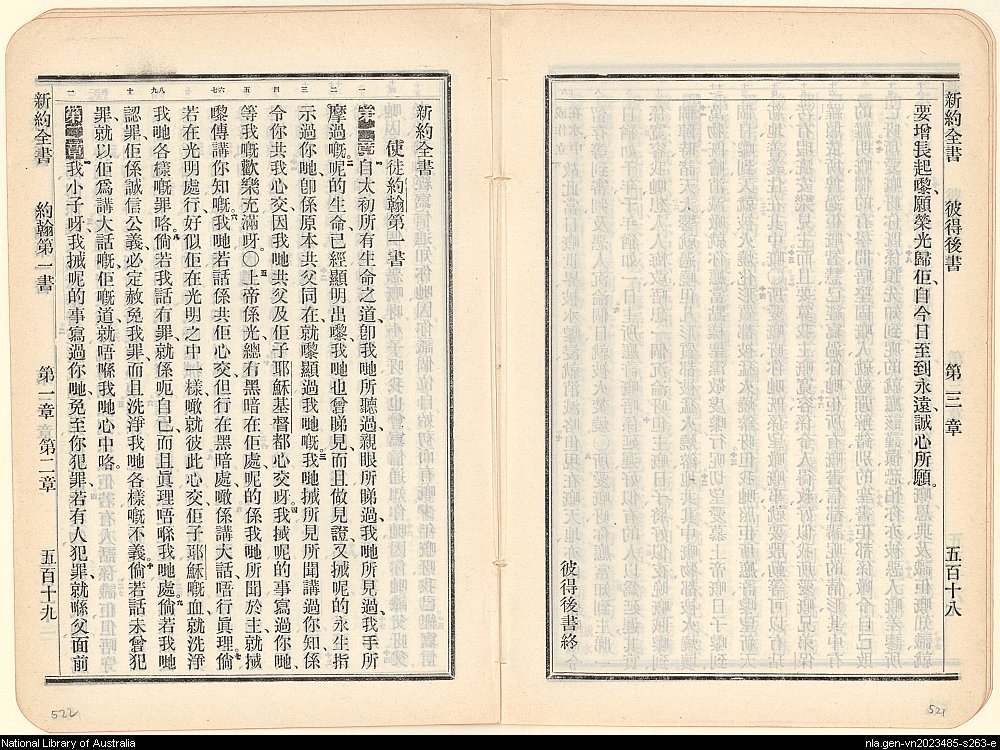 新約全書 彼得後書 第三章 五百十八
要增長起嚟、願榮光歸佢、自今日至到永遠、誠心所願。
彼得後書終
521
新約全書
使徒約翰第一書
第一章 自太初所有生命之道、卽我哋所聽過、親眼所睇過、我哋所見過、我手所
摩過嘅、呢的生命已經顯明出嚟、我哋也曾睇見、而且做見證、又將呢的永生指
示過你哋、卽係原本共父同在、就嚟顯過我哋嘅、我哋將所見所聞、講過你知、係
令你共我心交、因我哋共父、及佢子耶穌基督、都心交呀。我將呢的事寫過你哋、
等我嘅歡樂充滿呀。〇上帝係光、總有黑暗在佢處、呢的係我哋所聞於主、就將
嚟傳講你知嘅、我哋若話係共佢心交、但行在黑暗處、噉係講大話、唔行眞理、倘
若在光明處行、好似佢在光明之中一樣、噉就彼此心交、佢子耶穌嘅血、就洗淨
我哋各樣嘅罪咯。倘若我話冇罪、就係呃自己、而且眞理唔喺我哋處。倘若我哋
認罪、佢係誠信公義、必定赦免我罪、而且洗淨我哋各樣嘅不義。倘若話未曾犯
罪、就以佢爲講大話嘅、佢嘅道、就唔喺我哋心中咯。
第二章 我小子呀、我將呢的事寫過你哋、免至你犯罪、若有人犯罪、就喺父面前
新約全書 約翰第一書 第一章 第二章 五百十九
522
National Library of Australia
nla.gen-vn2023485-s263-e